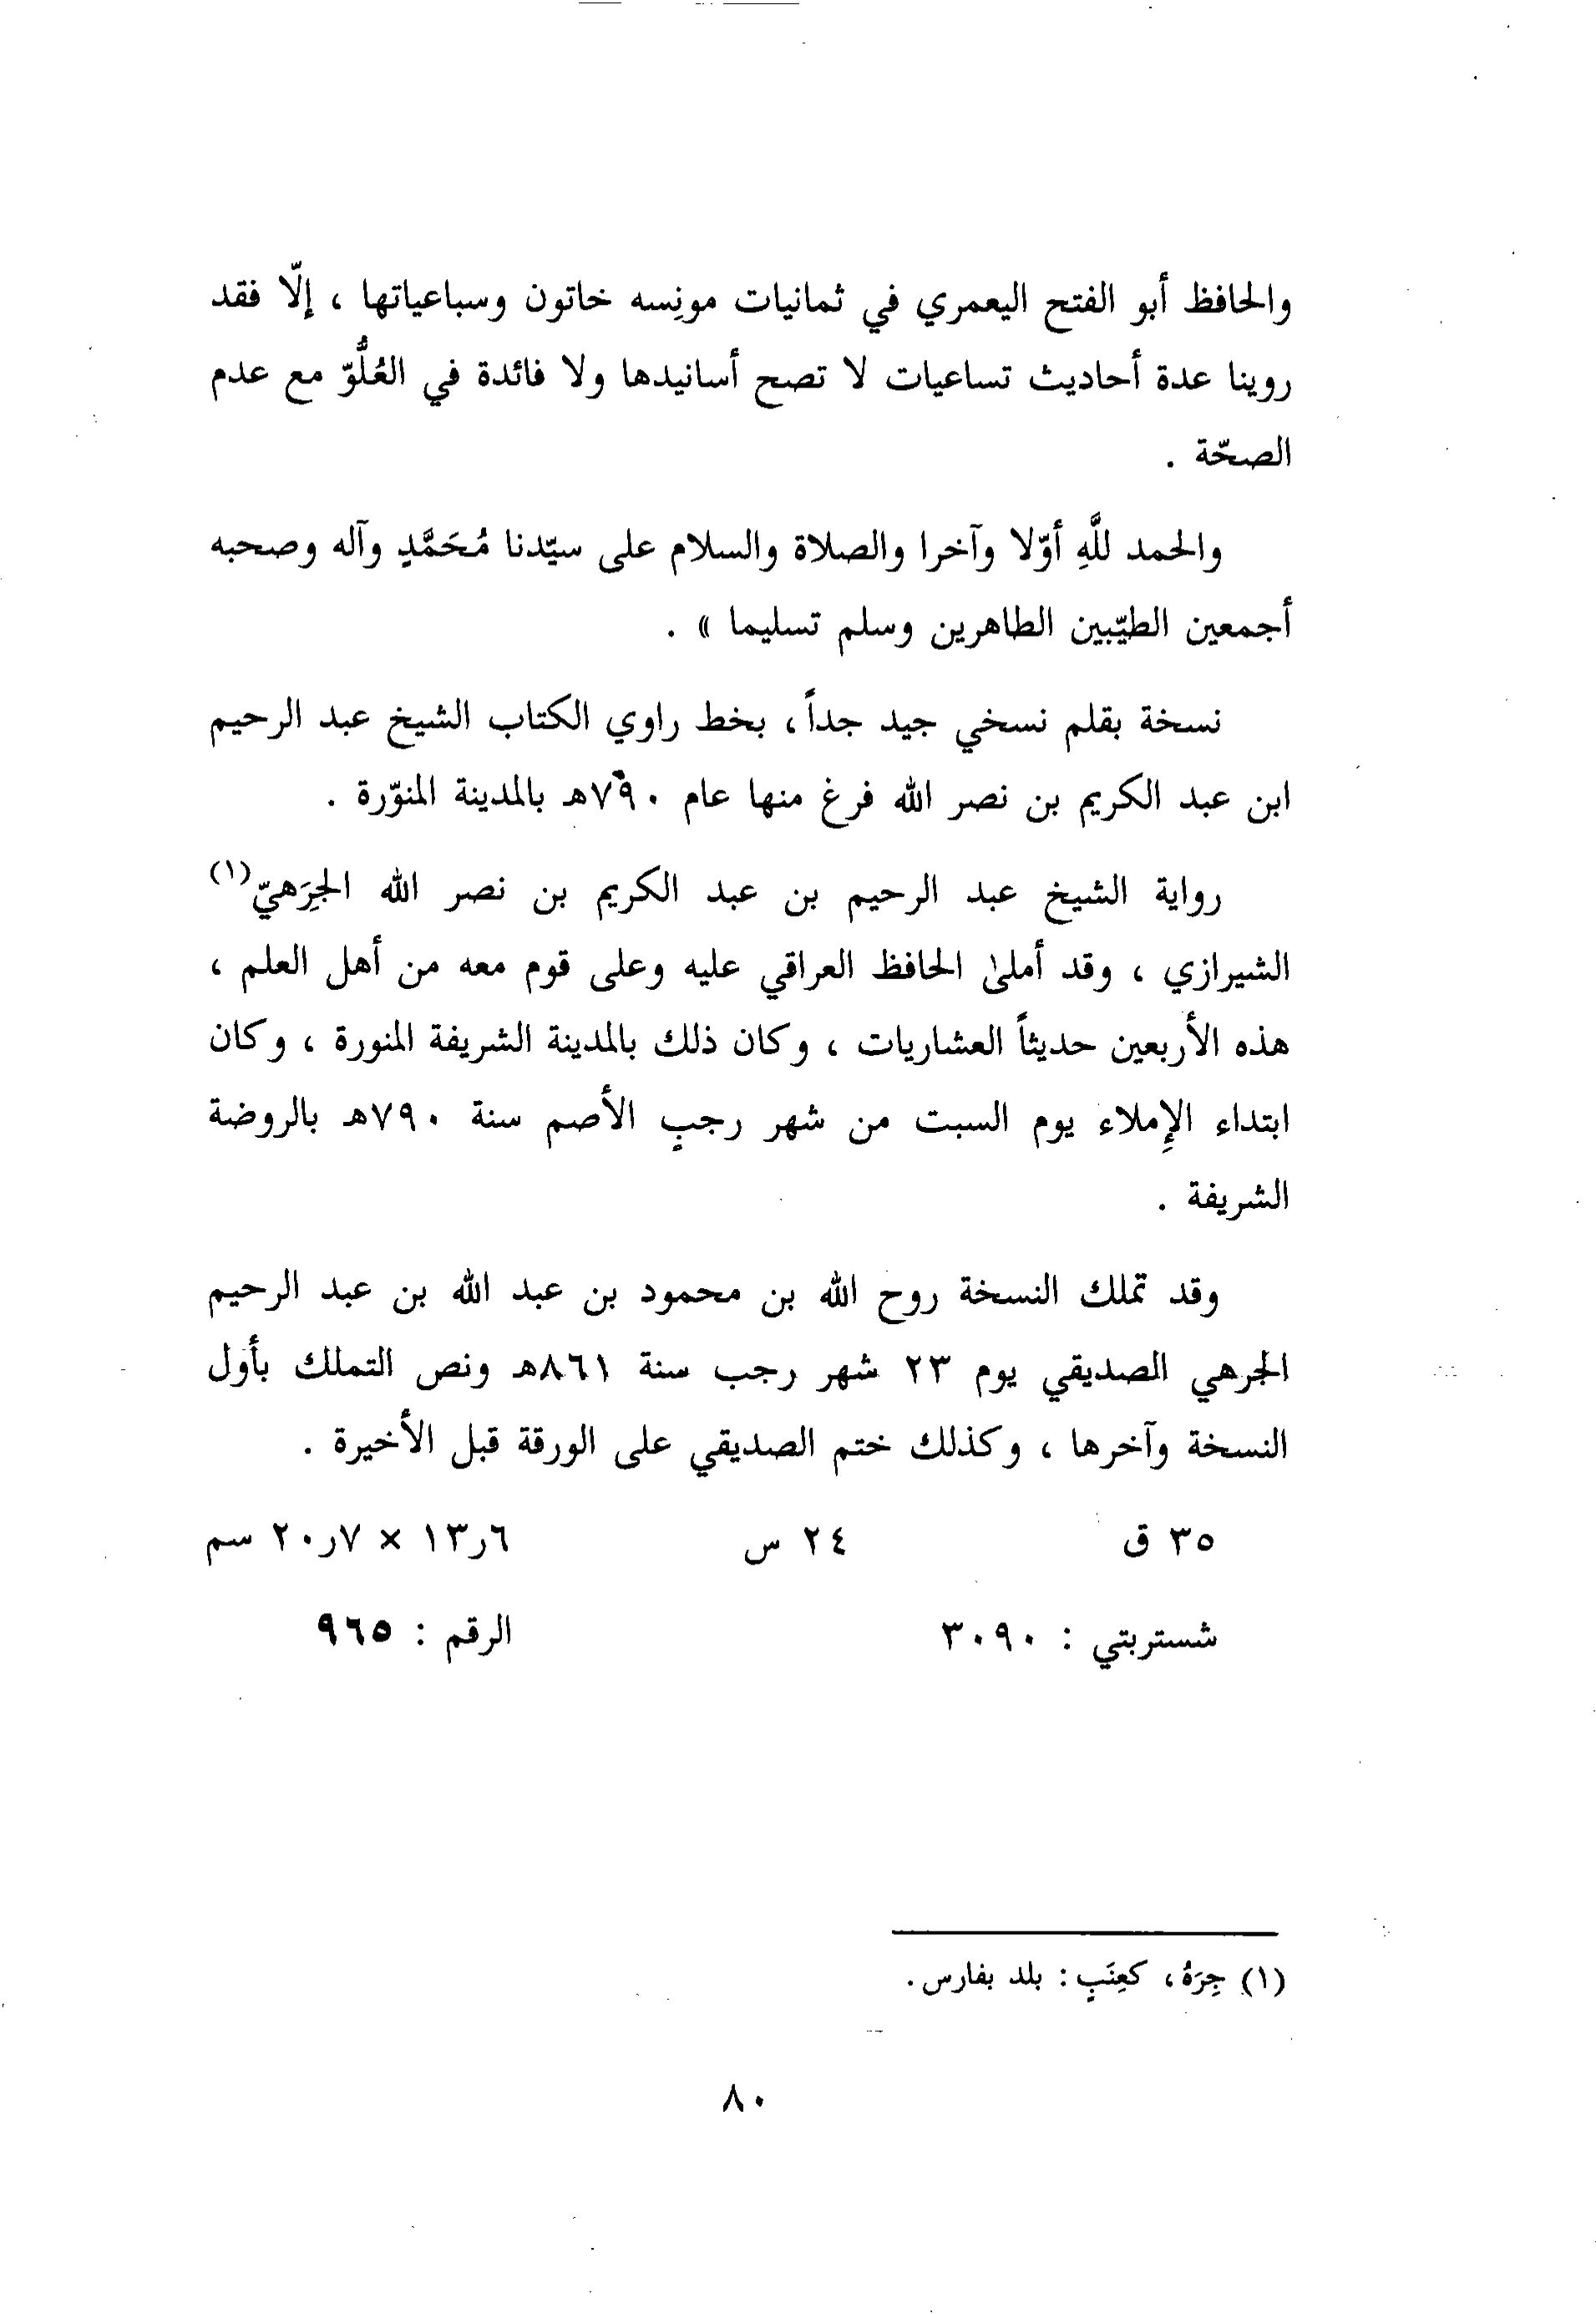 والحافظ أبو الفتح اليعمري في ثمانيات مونِسه خاتون وسباعياتها ، إلّا فقد
روينا عدة أحاديث تساعيات لا تصح أسانيدها ولا فائدة في العُلُّوّ مع عدم
الصحّة .
والحمد للَّهِ أوّلا وآخرا والصلاة والسلام على سيّدنا مُحَمَّدٍ وآله وصحبه
أجمعين الطيّبين الطاهرين وسلم تسليما » .
نسخة بقلم نسخي جيد جداً ، بخط راوي الكتاب الشيخ عبد الرحيم
ابن عبد الكريم بن نصر الله فرغ منها عام ٧٩٠هـ بالمدينة المنوّرة .
رواية الشيخ عبد الرحيم بن عبد الكريم بن نصر الله الجِرَهيّ(١)
الشيرازي ، وقد أملىٰ الحافظ العراقي عليه وعلى قوم معه من أهل العلم ،
هذه الأربعين حديثاً العشاريات ، وكان ذلك بالمدينة الشريفة المنورة ، وكان
ابتداء الإِملاء يوم السبت من شهر رجبٍ الأصم سنة ٧٩٠هـ بالروضة
الشريفة .
وقد تملك النسخة روح الله بن محمود بن عبد الله بن عبد الرحيم
الجرهي الصديقي يوم ٢٣ شهر رجب سنة ٨٦١هـ ونص التملك بأول
النسخة وآخرها ، وكذلك ختم الصديقي على الورقة قبل الأخيرة .
٣٥ ق ٢٤ س ٦ر١٣ × ٧ر٢٠ سم
شستربتي : ٣٠٩٠ الرقم : ٩٦٥
(١) جِرَهُ ، كعِنَبٍ : بلد بفارس .
٨٠